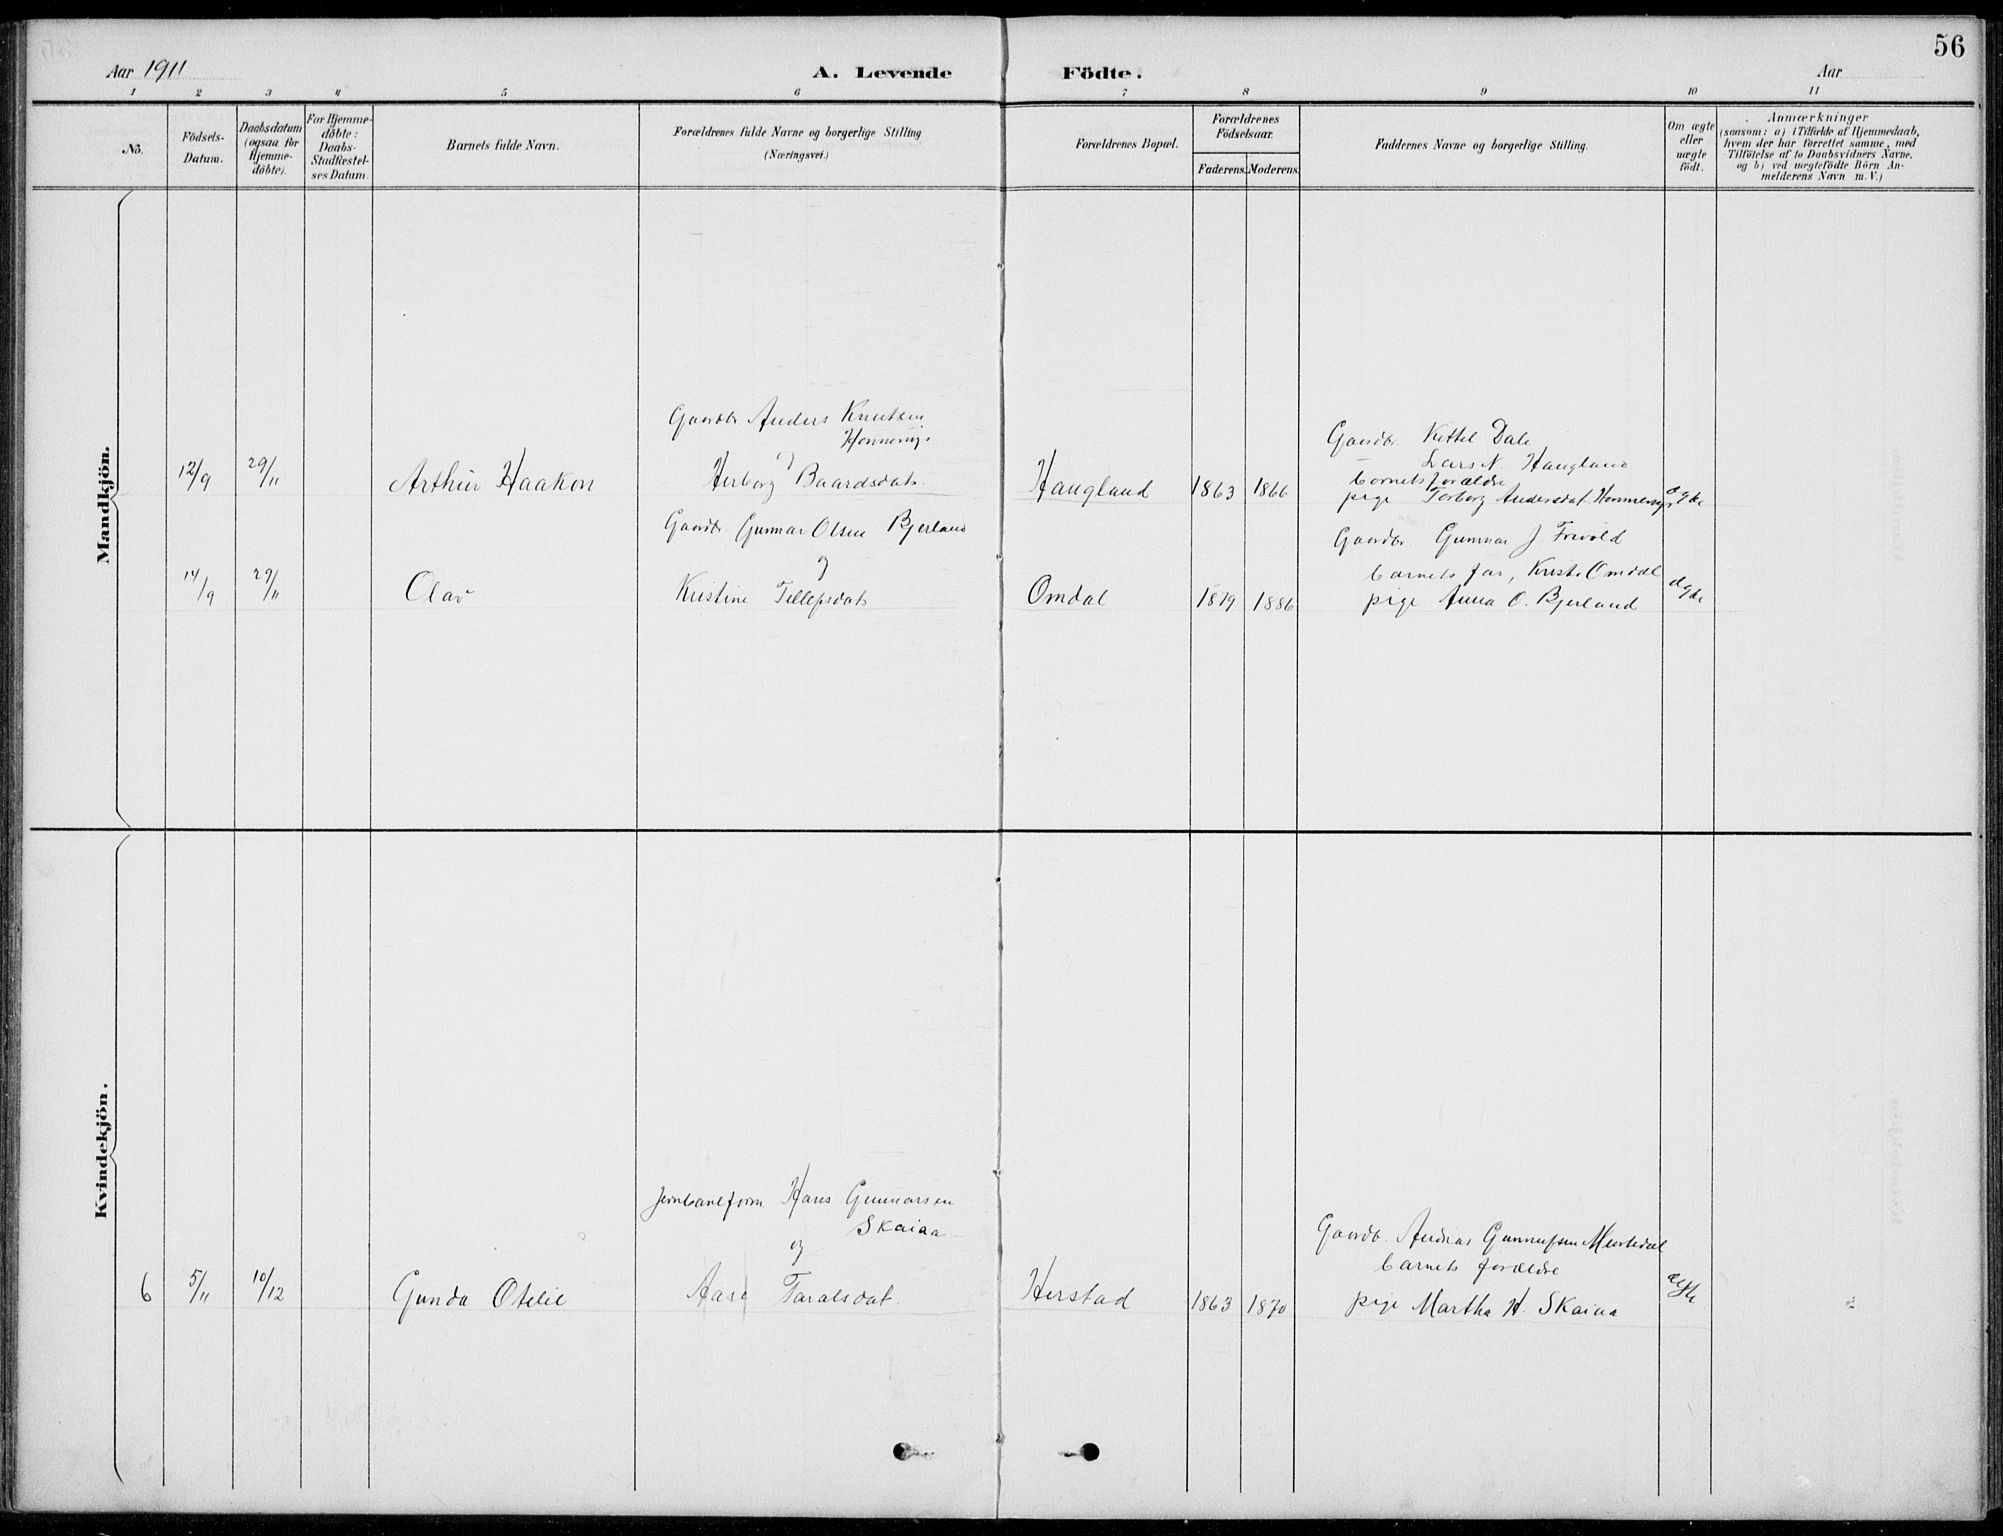 56
Aar 1911
A. Levende Födte.
Aar
1 2 3 4 5 6 7 8 9 10 11
No.
Födsels-
Datum.
Daabsdatum
(ogsaa for
Hjemme-
döbte).
For Hjemme-
döbte:
Daabs-
Stadfæstel-
ses Datum.
Barnets fulde Navn.
Forældrenes fulde Navne og borgerlige Stilling
(Næringsvei.)
Forældrenes Bopæl.
Forældrenes
Födselsaar.
Faderens. Moderens.
Faddernes Navne og borgerlige Stilling.
Om ægte
eller
uægte
födt.
Anmærkninger
(saasom: a) i Tilfælde af Hjemmedaab,
hvem der har forrettet samme, med
Tilföielse af to Daabsvidners Navne.
og b) ved uægtefödte Börn An-
melderens Navn m. V.)
Mandkjön.
Gaardbr Anders Knutsen
og
12/9 29/11 Arthur Haakon Herborg Baardsdat. Haugland 1863 1866
Gaardbr. Kittel Dale
Lars N. Haugland
barnets forældre
pige Torborg Andersdat. ægte
Gaardbr Gunnar Olsen Bjerland
og
14/9 29/11 Olav Kristine Tellefsdat Omdal 1879 1886
Gaardbr. Gunnar J. Frivold
barnets far, Omdal
pige Anna O. Bjerland ægte
Kvindekjön.
Hans Gunnarsen
Skaiaa
og
6 5/11 10/12 Gunda Otelie Aase Taralsdat. Herstad 1863 1870
Gaardbr. Andreas
barnets forældre
pige Martha H. Skaiaa ægte